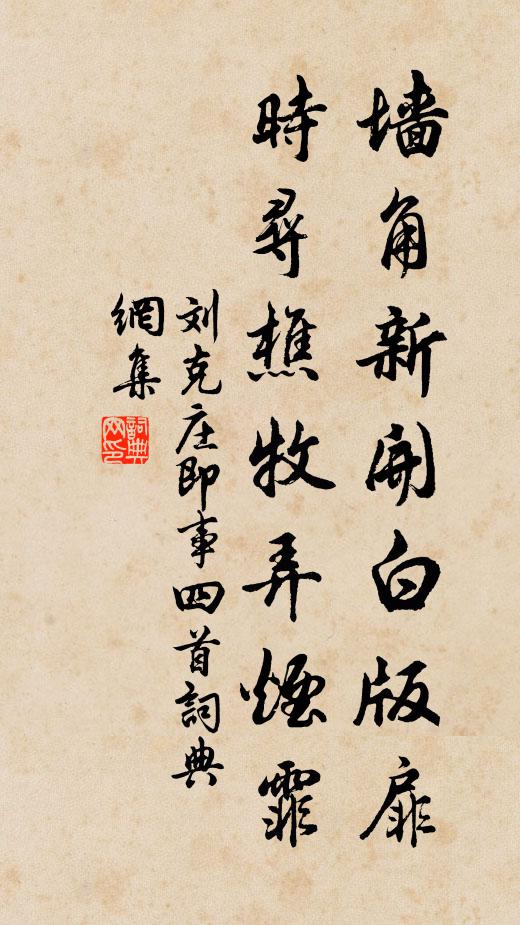 墙角新開白版扉
時尋樵牧弄煙霏
刘克庄即事四首詞典
網集
詞典网印